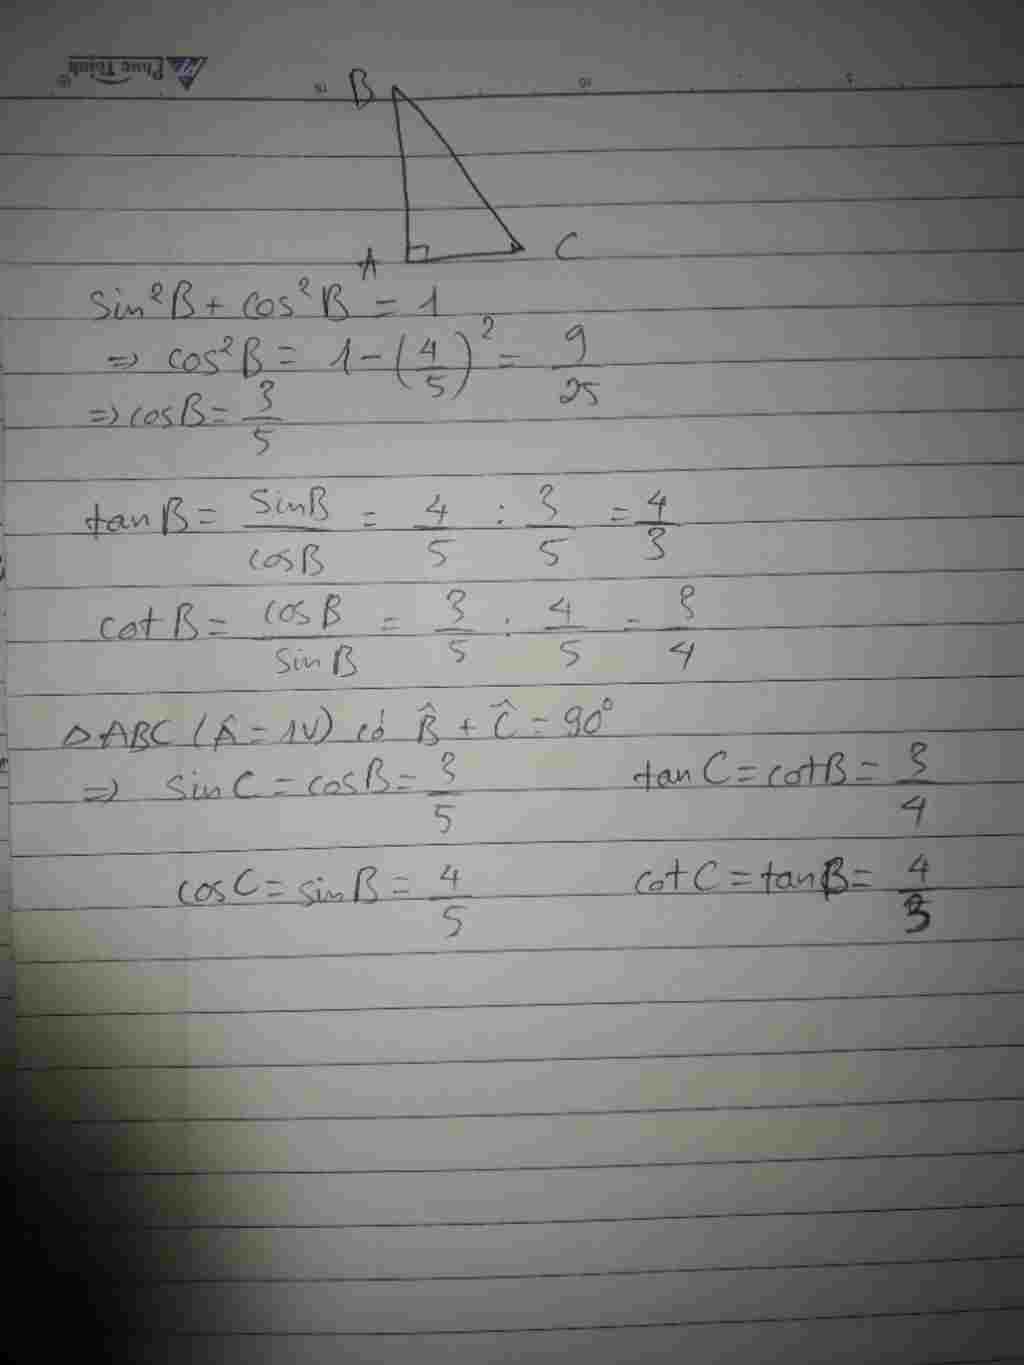 Phúc Thịnh
15 10 5
B
A C
sin²B + cos²B = 1
=> cos²B = 1 - (4/5)² = 9/25
=> cosB = 3/5
tanB = sinB/cosB = 4/5 : 3/5 = 4/3
cotB = cosB/sinB = 3/5 : 4/5 = 3/4
△ABC (Â = 1V) có B̂ + Ĉ = 90°
=> sinC = cosB = 3/5 tanC = cotB = 3/4
cosC = sinB = 4/5 cotC = tanB = 4/3